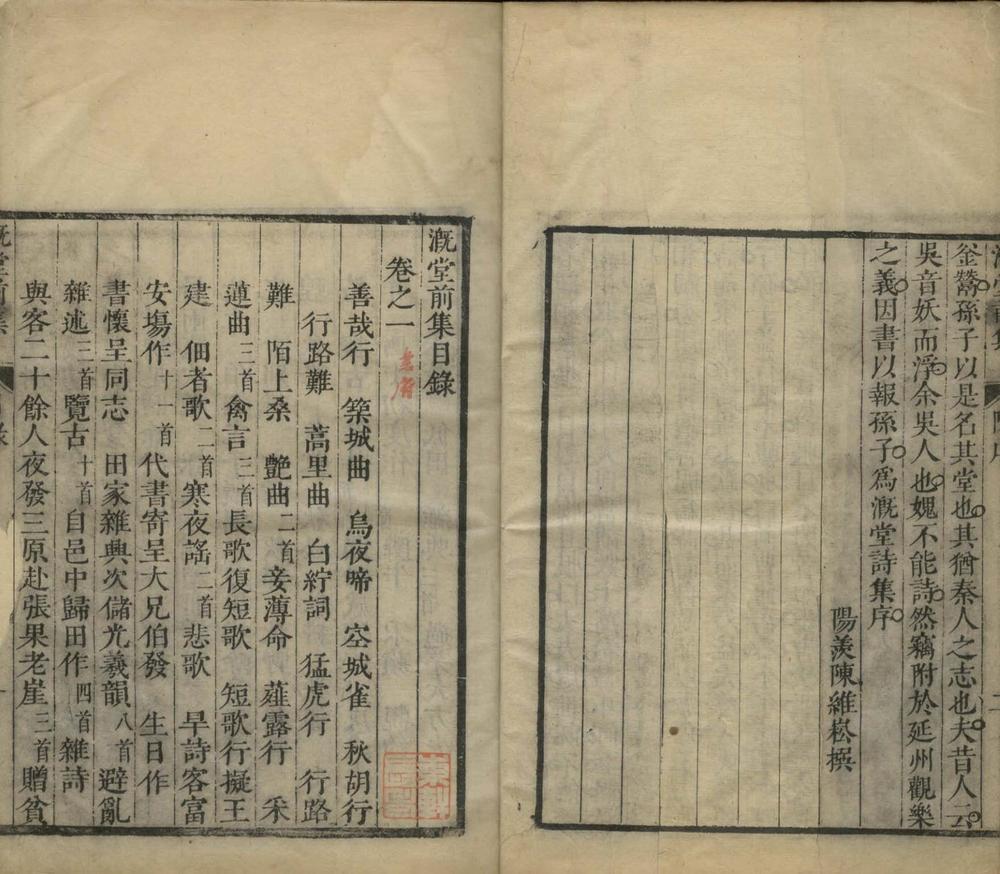 釜鬵孫子以是名其堂也其猶秦人之志也夫昔人云
吳音妖而浮余吳人也媿不能詩然竊附於延州觀樂
之義因書以報孫子爲溉堂詩集序
陽羡陳維崧撰
溉堂前集目錄
卷之一
善哉行 築城曲 烏夜啼 空城雀 秋胡行
行路難 蒿里曲 白紵詞 猛虎行 行路
難 陌上桑 艷曲二首 妾薄命 薤露行 采
蓮曲三首 禽言三首 長歌復短歌 短歌行擬王
建 佃者歌二首 寒夜謠二首 悲歌 早詩客富
安塲作十一首 代書寄呈大兄伯發 生日作
書懷呈同志 田家雜興次儲光羲韻八首 避亂
雜述三首 覽古十首 自邑中歸田作四首 雜詩
與客二十餘人夜發三原赴張果老崖三首 贈貧
溉堂前集